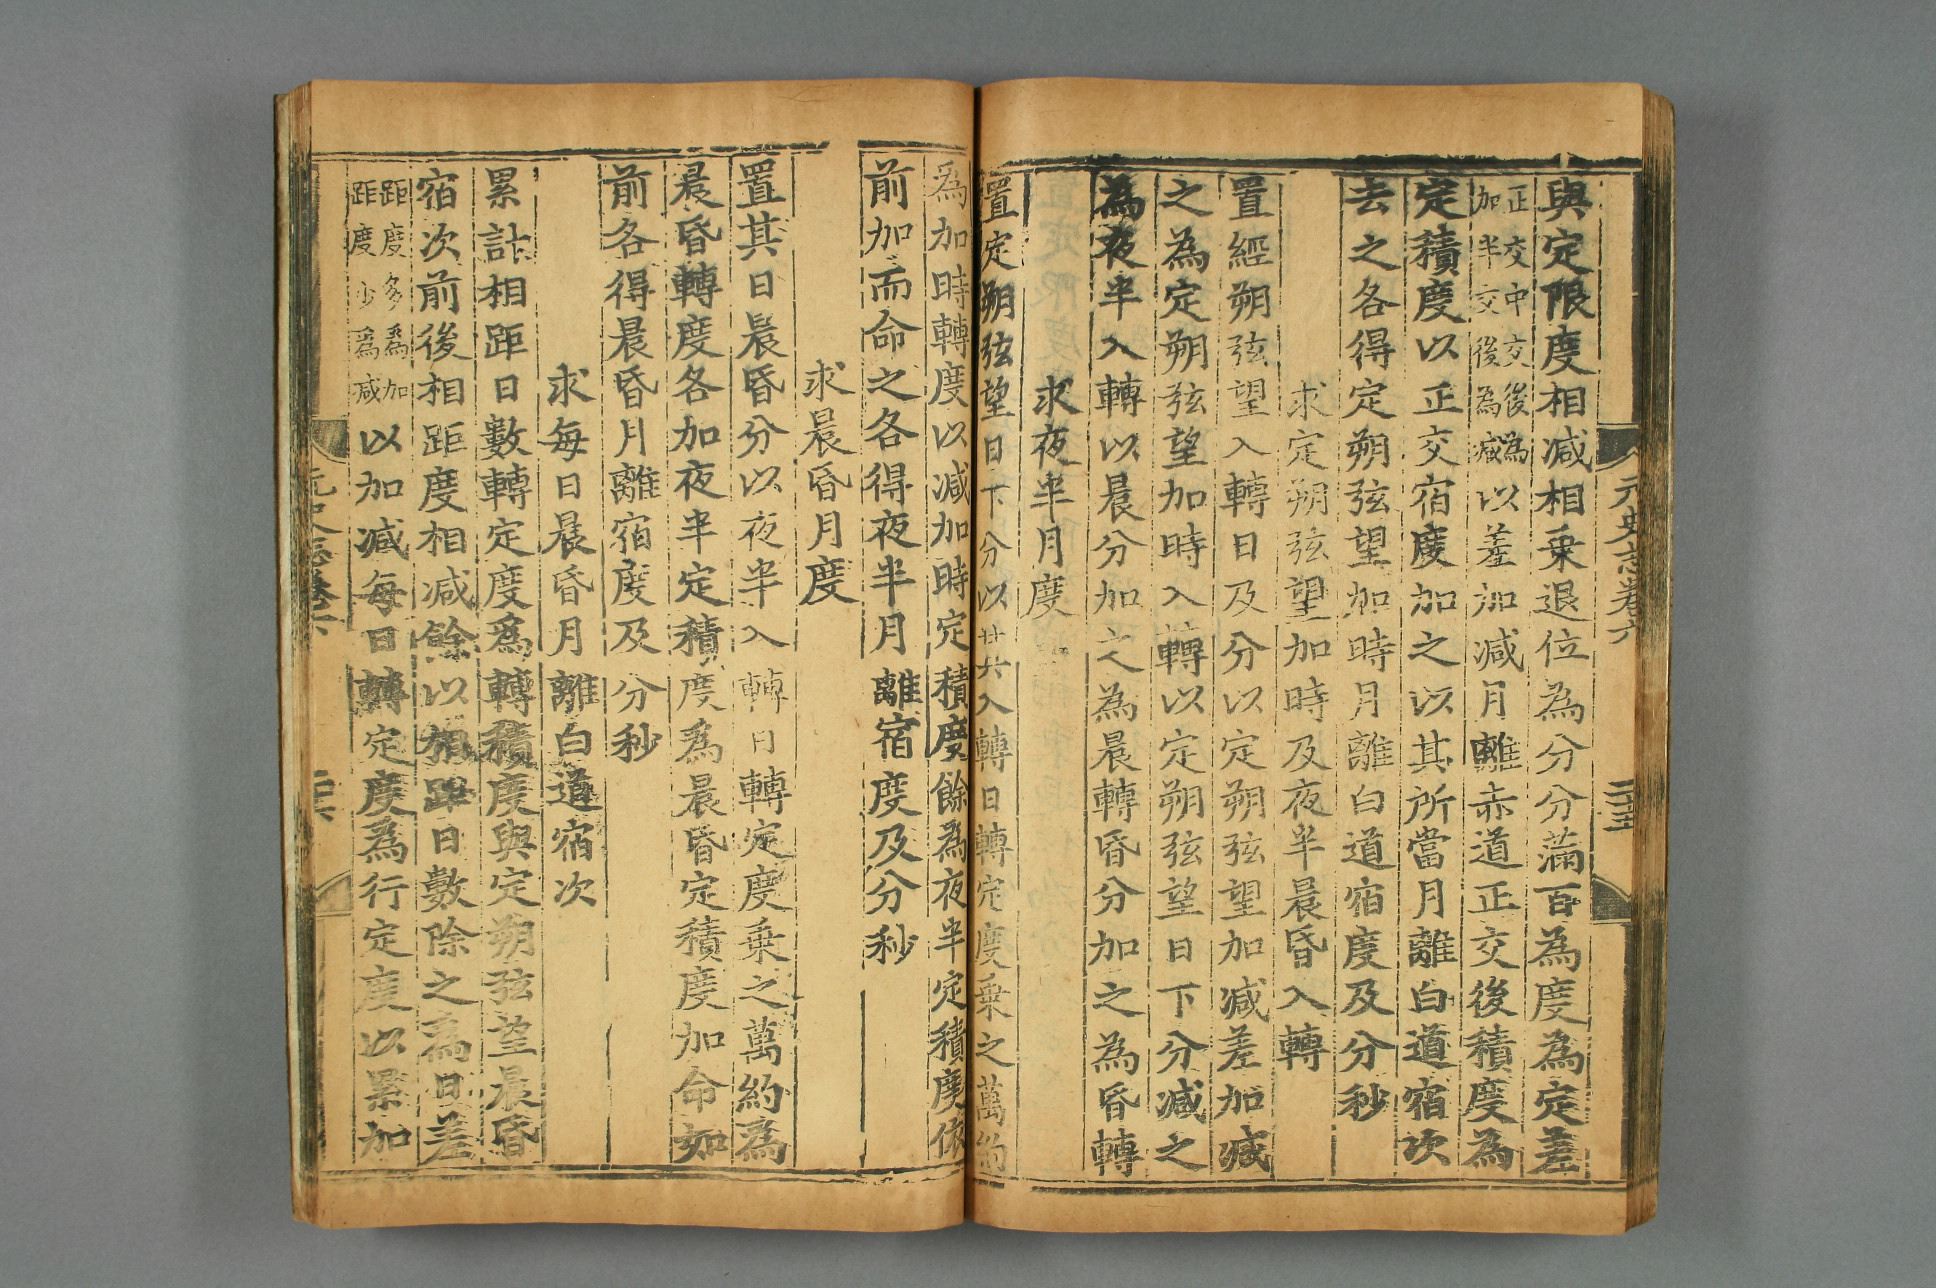 元史志卷六
二十五
與定限度相減相乗退位為分分滿百為度為定差
正交中交後為
加半交後為減
以差加減月離赤道正交後積度為
定積度以正交宿度加之以其所當月離白道宿次
去之各得定朔弦望加時月離白道宿度及分秒
求定朔弦望加時及夜半晨昏入轉
置經朔弦望入轉日及分以定朔弦望加減差加減
之為定朔弦望加時入轉以定朔弦望日下分減之
為夜半入轉以晨分加之為晨轉昏分加之為昏轉
求夜半月度
置定朔弦望日下分以其入轉日轉定度乗之萬約
為加時轉度以減加時定積度餘為夜半定積度依
前加而命之各得夜半月離宿度及分秒
求晨昏月度
置其日晨昏分以夜半入轉日轉定度乗之萬約為
晨昏轉度各加夜半定積度為晨昏定積度加命如
前各得晨昏月離宿度及分秒
求每日晨昏月離白道宿次
累計相距日數轉定度為轉積度與定朔弦望晨昏
宿次前後相距度相減餘以相距日數除之為日差
距度多為加
距度少為減
以加減每日轉定度為行定度以累加
元史志卷六
二十六